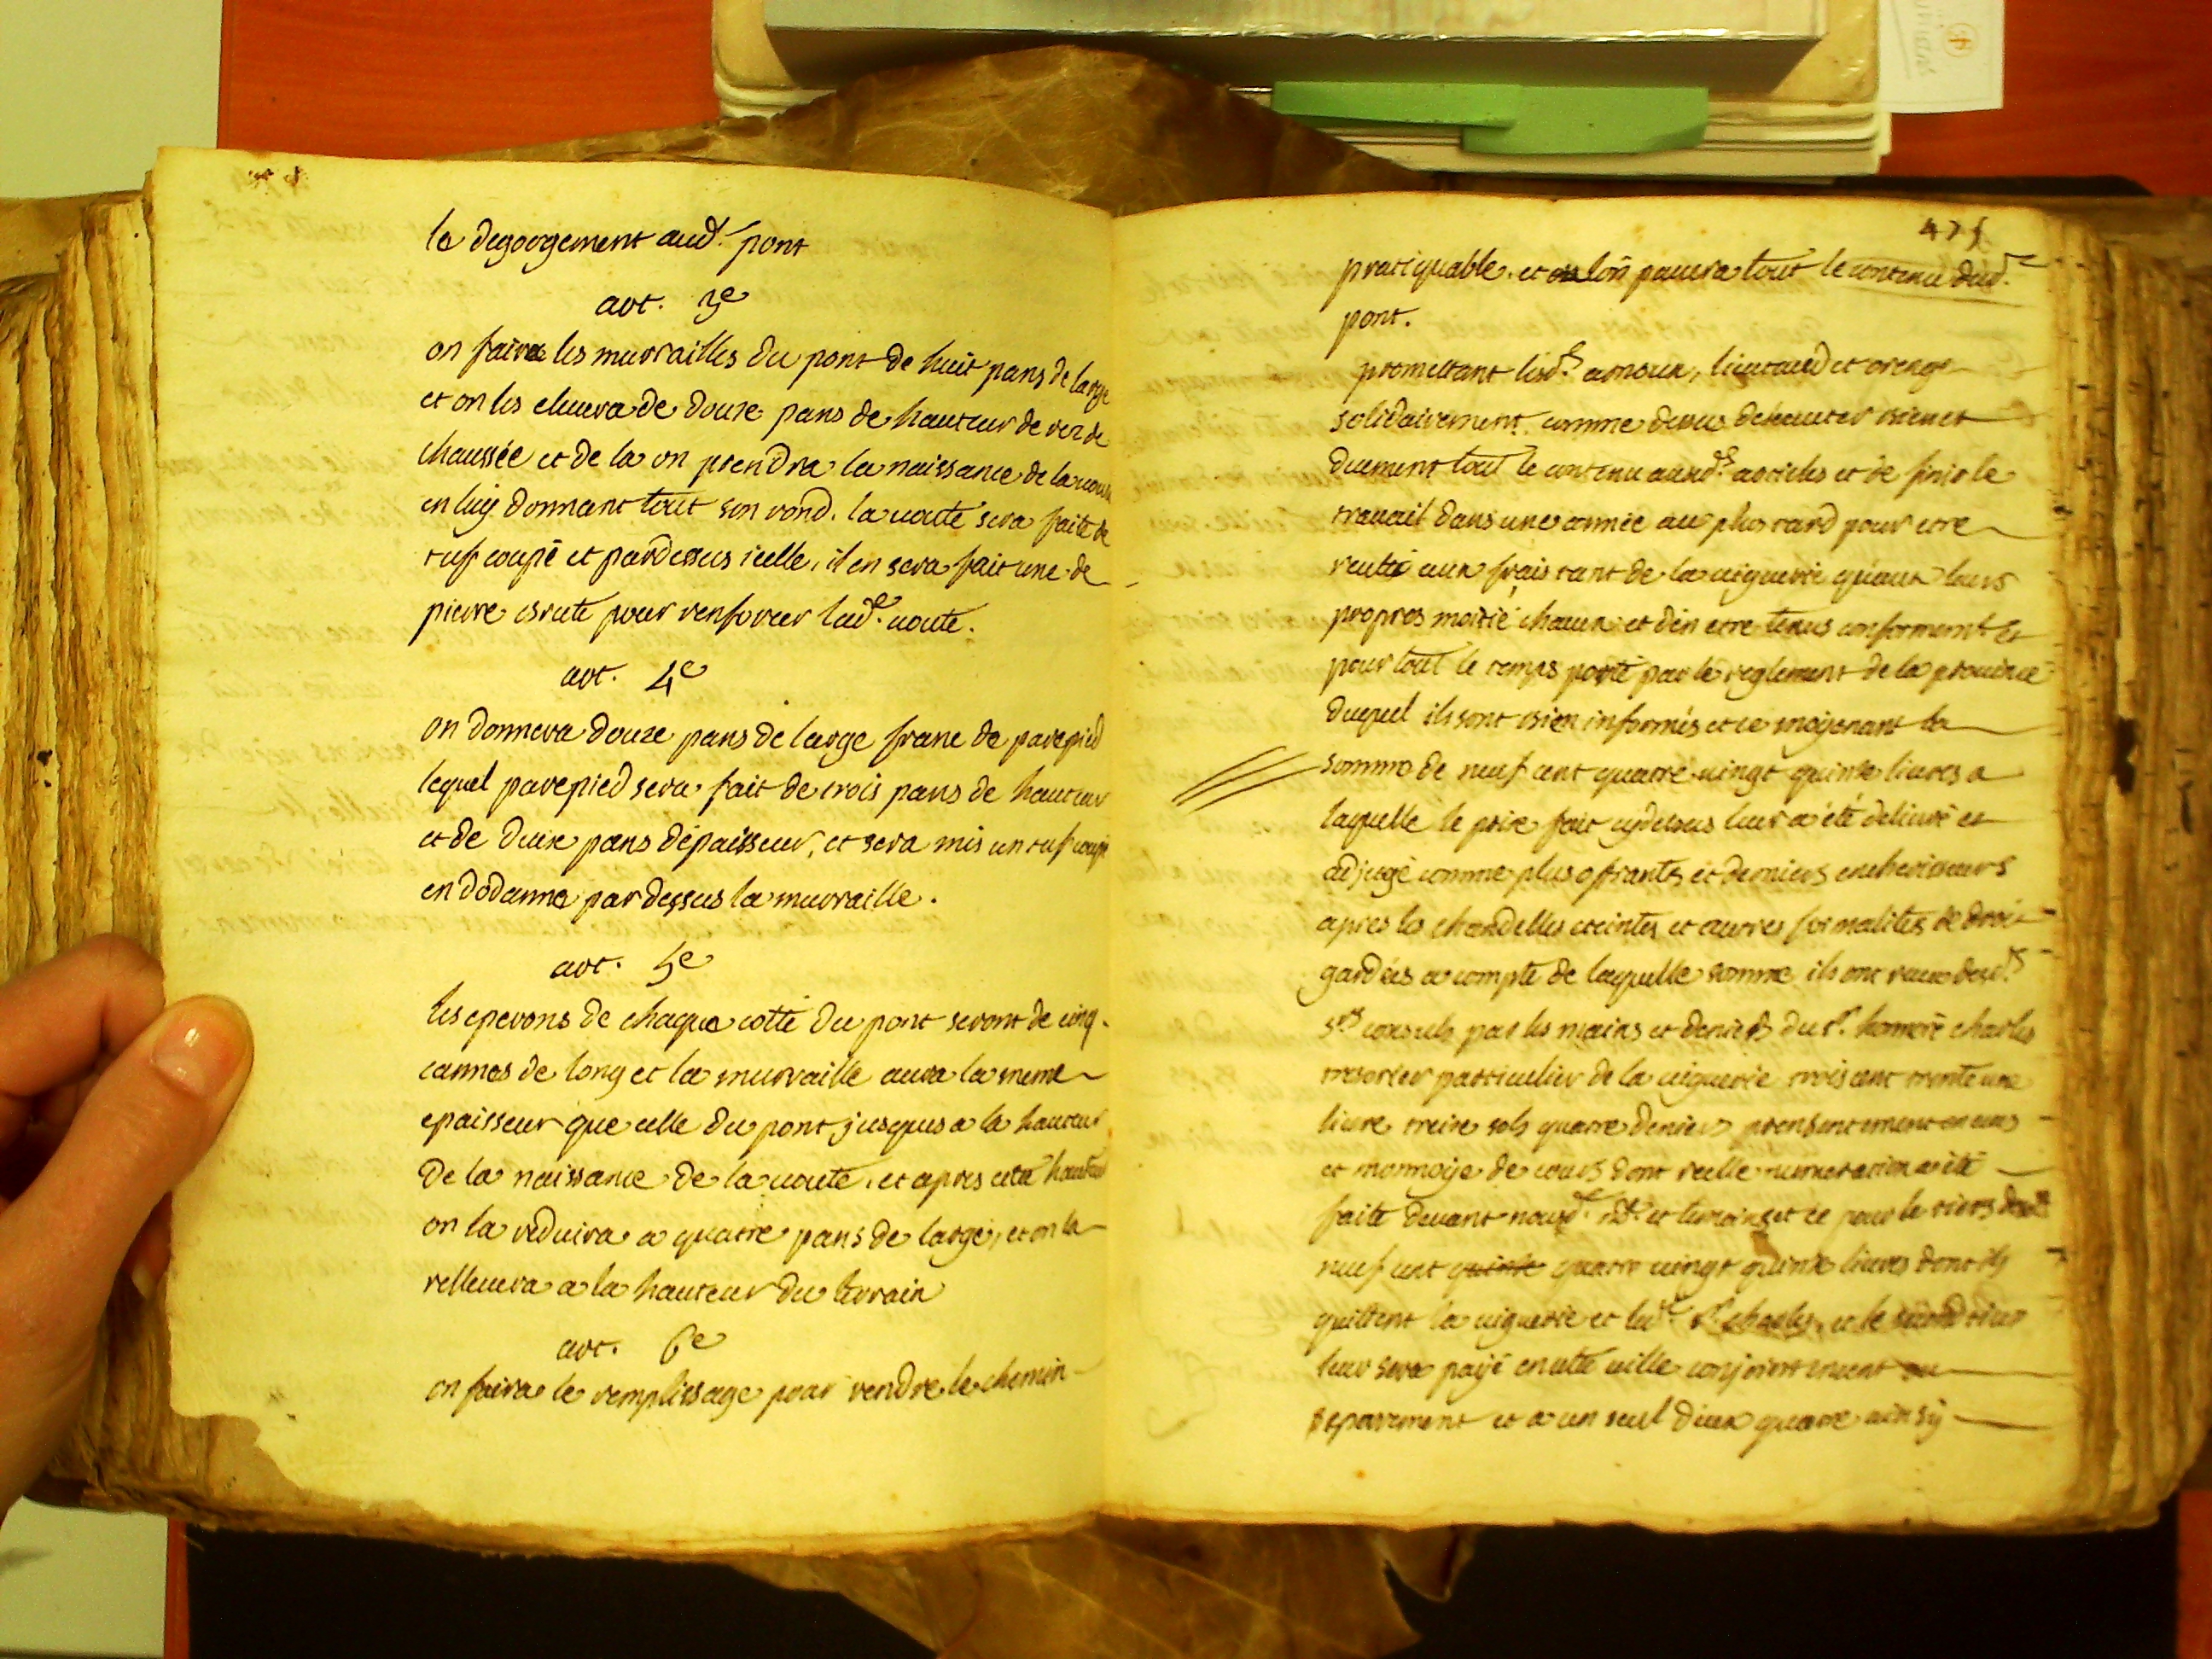 le degorgement aud.t pont
art. 3e
on faira les murrailles du pont de huit pans de large
et on les eluera de douze pans de hauteur de rez de
chaussée et de la on prendra la naissance de la uoute
en luy donnant tout son rond. la uoute sera faite de
tuf coupé et pardessus icelle, il en sera fait une de
pierre brute pour renforcer lad.e uoute.
art. 4e
on donnera douze pans de large franc de parepied
lequel parepied sera fait de trois pans de hauteur
et de deux pans d'epaisseur, et sera mis un tuf coupé
en dodanne par dessus la murraille.
art. 5e
les eperons de chaque cotté du pont seront de cinq
cannes de long et la murraille aura la meme
epaisseur que celle du pont jusques a la hauteur
de la naissance de la uoute, et apres cette hauteur
on la reduira a quatre pans de large, et on la
relleuera a la hauteur du terrain
art. 6e
on faira le remplissage pour rendre le chemin
475
pratiquable. et lon pauera tout le contenu dud.t
pont.
promettant lesd.s arnoux, lieutaud et orenge
solidairement comme dessus dexecuter bien et
duement tout le contenu auxd.s articles et de finir le
trauail dans une année au plus tard pour etre
recutté aux frais tant de la uiguerie qu'aux leurs
propres moitié chacun et d'en etre tenus conformemt. et
pour tout le temps porté par le reglement de la prouince
duquel ils sont bien informés et ce moyenant la
somme de neuf cent quatre uingt quinze liures a
laquelle le prix fait cydessus leur a été deliuré et
adjugé comme plus offrants et derniers encherisseurs
apres les chandelles eteintes et autres formalités de droit
gardées a compte de laquelle somme ils ont receu desd.s
srs. consuls par les mains et deniers du sr. honnoré charles
tresorier particulier de la uiguerie trois cent trente une
liure treize sols quatre deniers presentement en ecus
et monnoye de cours dont reelle numeration a été
faite deuant nousd.t nre. et temoins et ce pour le tiers desd.
neuf cent quinze quatre uingt quinze liures dont ils
quittent la uiguerie et led.t sr. charles, et le second tiers
leur sera payé en cette uille conjointement ou
separement et a un seul d'eux quatre ainsy